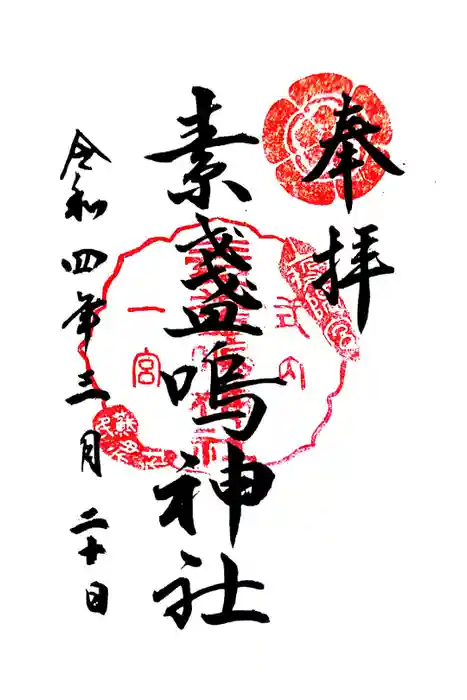 奉拝
素盞嗚神社
令和四年三月二十日
式内
一宮